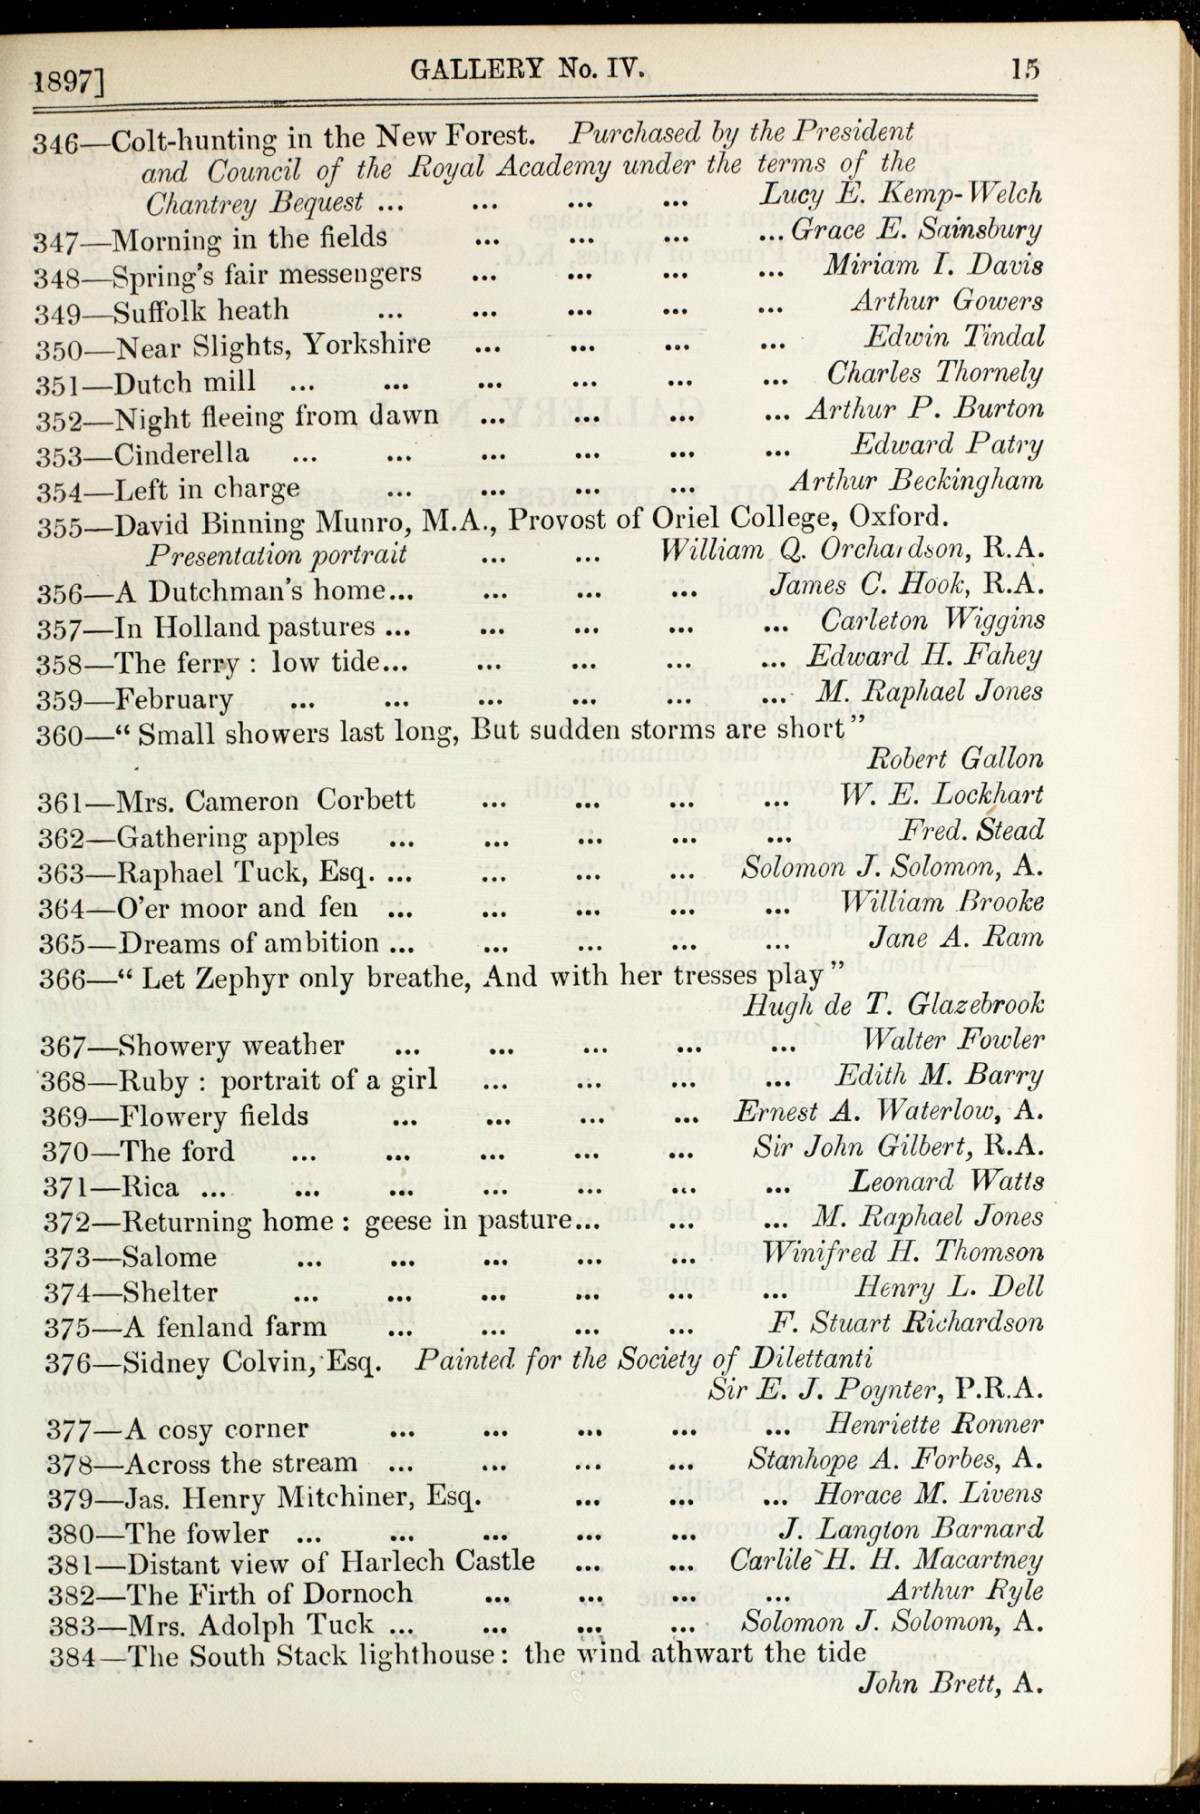 1897] GALLERY No. IV. 15
346—Colt-hunting in the New Forest. Purchased by the President
and Council of the Royal Academy under the terms of the
Chantrey Bequest ... ... ... ... Lucy E. Kemp-Welch
347—Morning in the fields ... ... ... ... Grace E. Sainsbury
348—Spring's fair messengers ... ... ... ... Miriam I. Davis
349—Suffolk heath ... ... ... ... ... Arthur Gowers
350—Near Slights, Yorkshire ... ... ... ... Edwin Tindal
351—Dutch mill ... ... ... ... ... ... Charles Thornely
352—Night fleeing from dawn ... ... ... ... Arthur P. Burton
353—Cinderella ... ... ... ... ... ... Edward Patry
354—Left in charge ... ... ... ... Arthur Beckingham
355—David Binning Munro, M.A., Provost of Oriel College, Oxford.
Presentation portrait ... ... William Q. Orchardson, R.A.
356—A Dutchman's home... ... ... ... James C. Hook, R.A.
357—In Holland pastures ... ... ... ... ... Carleton Wiggins
358—The ferry : low tide... ... ... ... ... Edward H. Fahey
359—February ... ... ... ... ... ... M. Raphael Jones
360—“ Small showers last long, But sudden storms are short”
Robert Gallon
361—Mrs. Cameron Corbett ... ... ... ... W. E. Lockhart
362—Gathering apples ... ... ... ... ... Fred. Stead
363—Raphael Tuck, Esq. ... ... ... ... Solomon J. Solomon, A.
364—O'er moor and fen ... ... ... ... ... William Brooke
365—Dreams of ambition ... ... ... ... ... Jane A. Ram
366—“ Let Zephyr only breathe, And with her tresses play”
Hugh de T. Glazebrook
367—Showery weather ... ... ... ... ... Walter Fowler
368—Ruby : portrait of a girl ... ... ... ... Edith M. Barry
369—Flowery fields ... ... ... ... Ernest A. Waterlow, A.
370—The ford ... ... ... ... ... Sir John Gilbert, R.A.
371—Rica ... ... ... ... ... ... ... Leonard Watts
372—Returning home : geese in pasture... ... ... M. Raphael Jones
373—Salome ... ... ... ... ... Winifred H. Thomson
374—Shelter ... ... ... ... ... ... Henry L. Dell
375—A fenland farm ... ... ... ... F. Stuart Richardson
376—Sidney Colvin, Esq. Painted for the Society of Dilettanti
Sir E. J. Poynter, P.R.A.
377—A cosy corner ... ... ... ... ... Henriette Ronner
378—Across the stream ... ... ... ... Stanhope A. Forbes, A.
379—Jas. Henry Mitchiner, Esq. ... ... ... Horace M. Livens
380—The fowler ... ... ... ... ... J. Langton Barnard
381—Distant view of Harlech Castle ... ... Carlile H. H. Macartney
382—The Firth of Dornoch ... ... ... ... Arthur Ryle
383—Mrs. Adolph Tuck ... ... ... ... Solomon J. Solomon, A.
384—The South Stack lighthouse : the wind athwart the tide
John Brett, A.